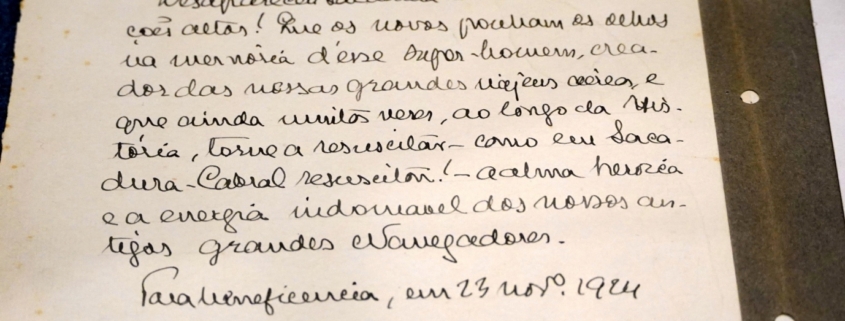 ções altas! Que os novos ponham os olhos
na memória d'ésse Super-homem, crea-
dor das nossas grandes viajens aéreas, e
que ainda muitas vezes, ao longo da His-
tória, torne a resuscitar - como em Saca-
dura-Cabral resuscitou! - a alma heroica
e a energia indomavel dos nossos an-
tigos grandes Navegadores.
Para beneficencia, em 23 novº. 1924